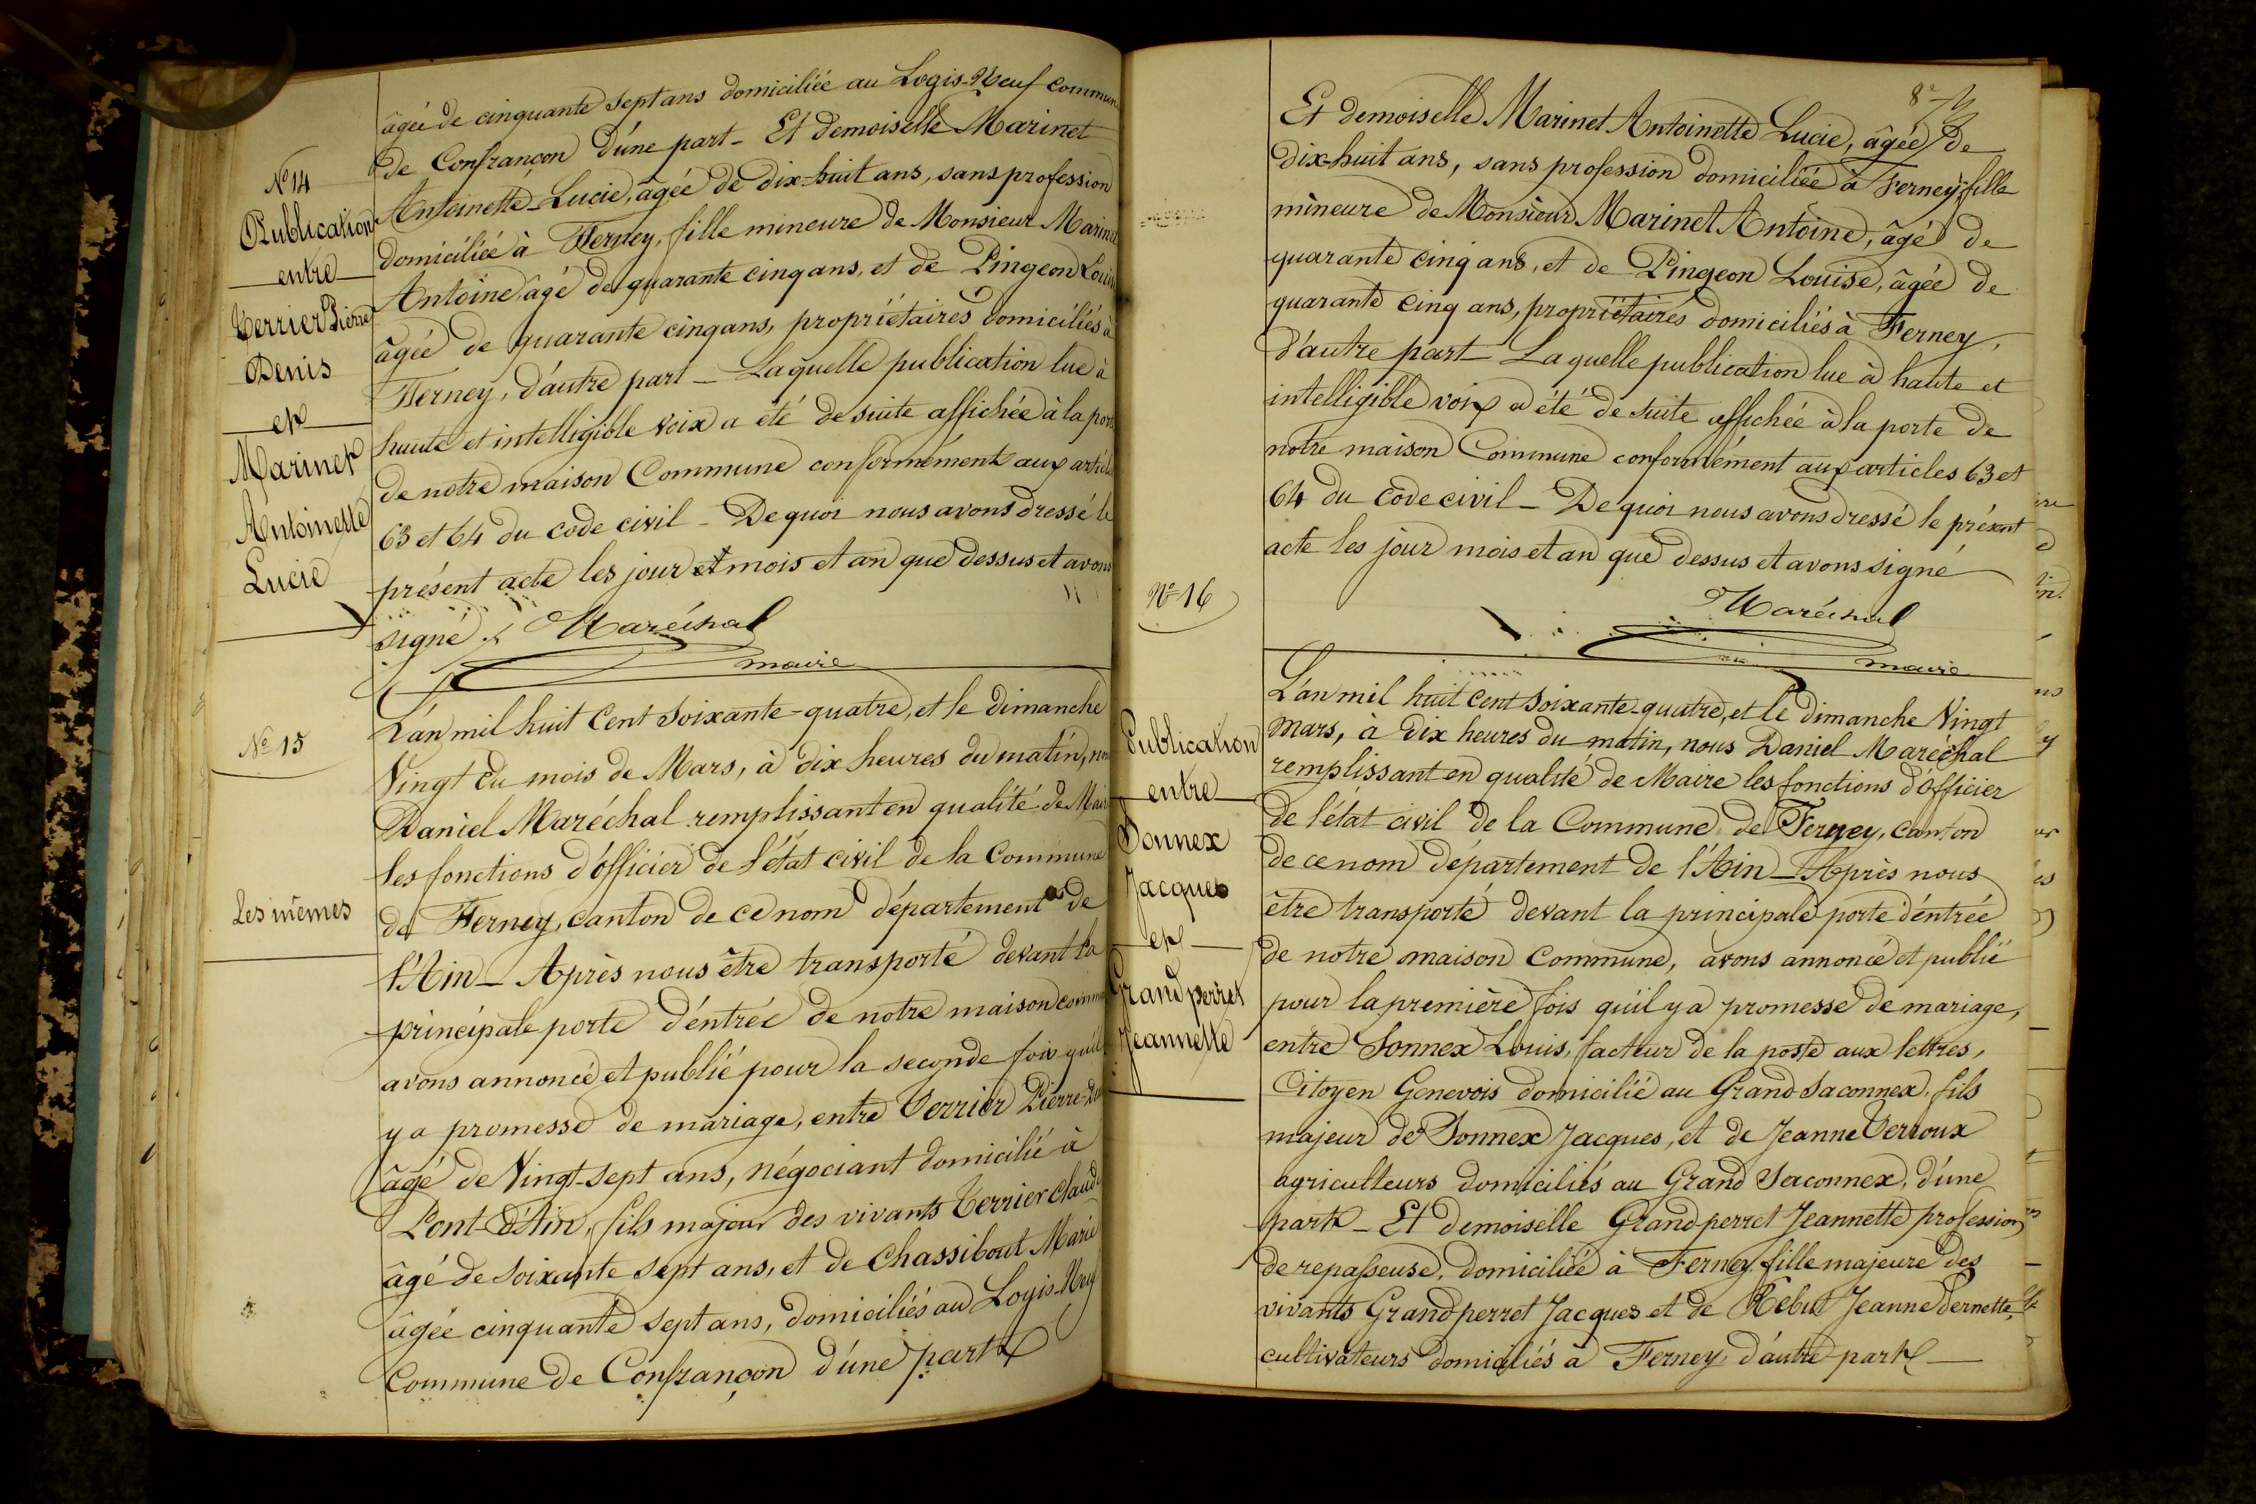 âgée de cinquante sept ans domiciliée au Logis-Neuf commune
de Confrançon d'une part - Et demoiselle Marinet
Antoinette-Lucie, âgée de dix-huit ans, sans profession
domiciliée à Ferney, fille mineure de Monsieur Marinet
Antoine âgé de quarante cinq ans, et de Pingeon Louise
âgée de quarante cinq ans, propriétaires domiciliés à
Ferney, d'autre part - Laquelle publication lue à
haute et intelligible voix a été de suite affichée à la porte
de notre maison Commune conformément aux articles
63 et 64 du code civil - De quoi nous avons dressé le
présent acte les jour et mois et an que dessus et avons
signé
Maréchal
maire
N° 14
Publication
entre
Verrier Pierre
Denis
et
Marinet
Antoinette
Lucie
N° 15
Les mêmes
L'an mil huit Cent Soixante-quatre, et le dimanche
Vingt du mois de Mars, à dix heures du matin, nous
Daniel Maréchal remplissant en qualité de Maire
les fonctions d'officier de l'état civil de la Commune
de Ferney, canton de ce nom département de
l'Ain - Après nous être transporté devant la
principale porte d'entrée de notre maison commune
avons annoncé et publié pour la seconde fois qu'il
y a promesse de mariage, entre Verrier Pierre-Denis
âgé de Vingt-sept ans, négociant domicilié à
Pont-d'Ain, fils majeur des vivants Verrier Claude
âgé de soixante sept ans, et de Chassibout Marie
âgée cinquante sept ans, domiciliés au Logis-Neuf
Commune de Confrançon d'une part
8
Et demoiselle Marinet Antoinette Lucie, âgée de
dix-huit ans, sans profession domiciliée à Ferney, fille
mineure de Monsieur Marinet Antoine, âgé de
quarante cinq ans, et de Pingeon Louise, âgée de
quarante cinq ans, propriétaires domiciliés à Ferney,
d'autre part - Laquelle publication lue à haute et
intelligible voix a été de suite affichée à la porte de
notre maison Commune conformément aux articles 63 et
64 du code civil - De quoi nous avons dressé le présent
acte les jour mois et an que dessus et avons signé
Maréchal
maire
N° 16
Publication
entre
Sonnex
Jacques
et
Grandperret
Jeannette
L'an mil huit Cent Soixante-quatre, et le dimanche Vingt
Mars, à dix heures du matin, nous Daniel Maréchal
remplissant en qualité de Maire les fonctions d'officier
de l'état civil de la Commune de Ferney, canton
de ce nom département de l'Ain - Après nous
être transporté devant la principale porte d'entrée
de notre maison Commune, avons annoncé et publié
pour la première fois qu'il y a promesse de mariage,
entre Sonnex Louis, facteur de la poste aux lettres,
Citoyen Genevois domicilié au Grand-Saconnex, fils
majeur de Sonnex Jacques, et de Jeanne Verroux
agriculteurs domiciliés au Grand Saconnex, d'une
part - Et demoiselle Grandperret Jeannette profession
de repasseuse, domiciliée à Ferney fille majeure des
vivants Grandperret Jacques et de Rebut Jeanne Pernette,
cultivateurs domiciliés à Ferney, d'autre part